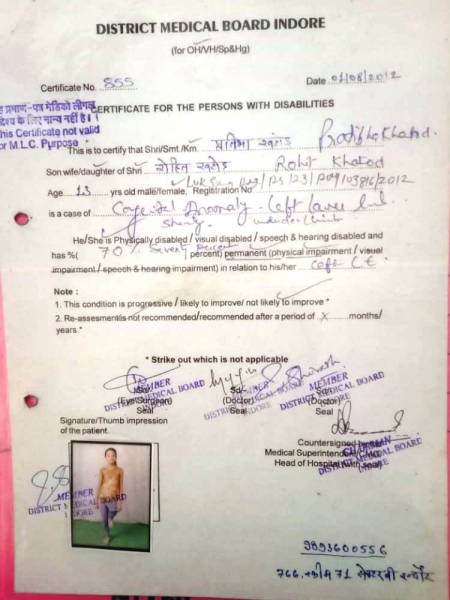 DISTRICT MEDICAL BOARD INDORE
(for OH/VH/Sp&Hg)
Certificate No. 855 Date 01/08/2012
प्रमाण-पत्र मेडिको लीगल
के लिए मान्य नहीं है।
his Certificate not valid
or M.L.C. Purpose
CERTIFICATE FOR THE PERSONS WITH DISABILITIES
This is to certify that Shri/Smt./Km. प्रतिभा खतेड़ Pratibha Khated.
Son wife/daughter of Shri रोहित खतेड़ Rohit Khated
Age 13 yrs old male/female, Registration No
is a case of Congenital Anomaly - Left Lower limb
He/She is Physically disabled / visual disabled / speech & hearing disabled and
has %( 70% Seventy Percent percent) permanent (physical impairment / visual
impairment / speech & hearing impairment) in relation to his/her Left L.E.
Note :
1. This condition is progressive / likely to improve/ not likely to improve *
2. Re-assesment is not recommended/recommended after a period of X months/
years.*
* Strike out which is not applicable
MEMBER
DISTRICT MEDICAL BOARD
INDORE
(Eye Surgeon)
Seal
(Doctor)
Seal
(Doctor)
Seal
Signature/Thumb impression
of the patient.
Countersigned
Medical Superintendent/CMO/
Head of Hospital (with seal)
CHAIRMAN
DISTRICT MEDICAL BOARD
INDORE
MEMBER
DISTRICT MEDICAL BOARD
INDORE
9893600556
766, स्कीम 71 सेक्टर बी इन्दौर